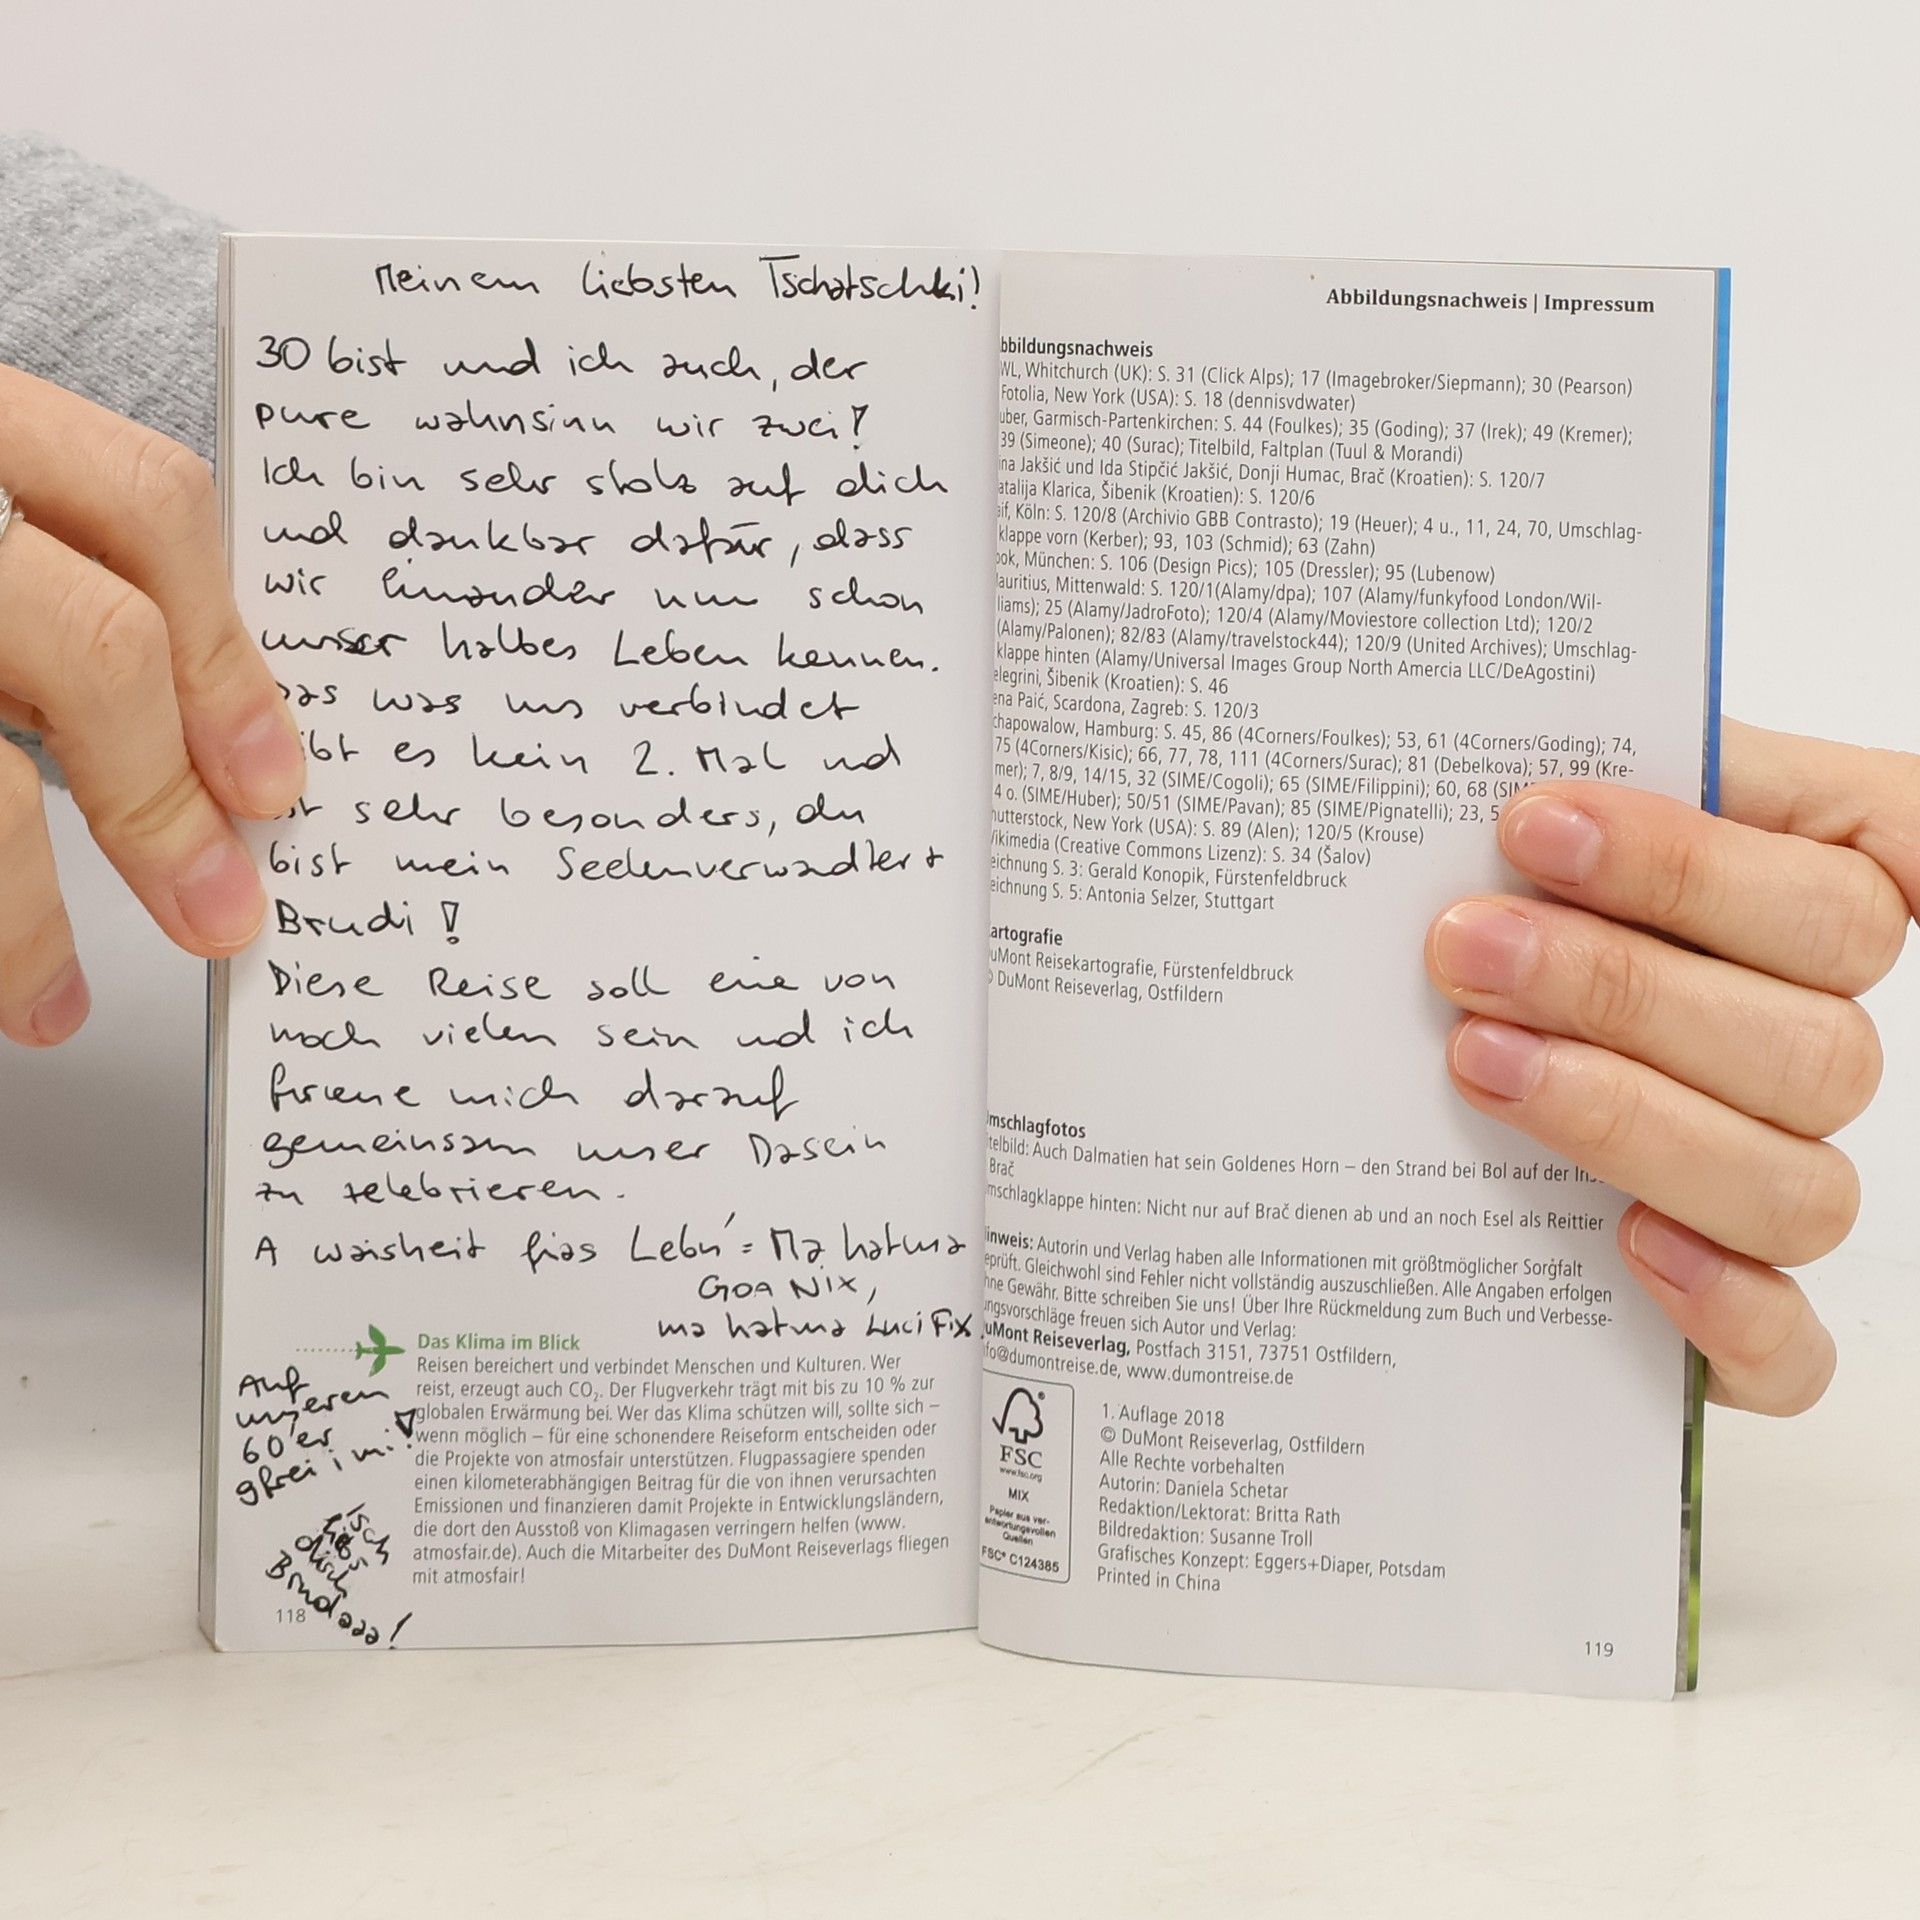 Meinem liebsten Tschatschki!
30 bist und ich auch, der
pure wahnsinn wir zwei!
Ich bin sehr stolz auf dich
und dankbar dafür, dass
wir einander nun schon
unser halbes Leben kennen.
as was uns verbindet
ibt es kein 2. Mal und
st sehr besonders, du
bist mein Seelenverwandter +
Brudi!
Diese Reise soll eine von
noch vielen sein und ich
freue mich darauf
gemeinsam unser Dasein
zu zelebrieren.
A waisheit fias Lebn' = Ma hatma
Goa Nix,
ma hatma Luci Fix
Auf
unseren
60'er
gfrei i mi!
Isch
liebs
disch
Brudaaa!
Das Klima im Blick
Reisen bereichert und verbindet Menschen und Kulturen. Wer
reist, erzeugt auch CO₂. Der Flugverkehr trägt mit bis zu 10 % zur
globalen Erwärmung bei. Wer das Klima schützen will, sollte sich –
wenn möglich – für eine schonendere Reiseform entscheiden oder
die Projekte von atmosfair unterstützen. Flugpassagiere spenden
einen kilometerabhängigen Beitrag für die von ihnen verursachten
Emissionen und finanzieren damit Projekte in Entwicklungsländern,
die dort den Ausstoß von Klimagasen verringern helfen (www.
atmosfair.de). Auch die Mitarbeiter des DuMont Reiseverlags fliegen
mit atmosfair!
118
Abbildungsnachweis | Impressum
bbildungsnachweis
WL, Whitchurch (UK): S. 31 (Click Alps); 17 (Imagebroker/Siepmann); 30 (Pearson)
Fotolia, New York (USA): S. 18 (dennisvdwater)
uber, Garmisch-Partenkirchen: S. 44 (Foulkes); 35 (Goding); 37 (Irek); 49 (Kremer);
39 (Simeone); 40 (Surac); Titelbild, Faltplan (Tuul & Morandi)
ina Jakšić und Ida Stipčić Jakšić, Donji Humac, Brač (Kroatien): S. 120/7
atalija Klarica, Šibenik (Kroatien): S. 120/6
aif, Köln: S. 120/8 (Archivio GBB Contrasto); 19 (Heuer); 4 u., 11, 24, 70, Umschlag-
klappe vorn (Kerber); 93, 103 (Schmid); 63 (Zahn)
ook, München: S. 106 (Design Pics); 105 (Dressler); 95 (Lubenow)
auritius, Mittenwald: S. 120/1(Alamy/dpa); 107 (Alamy/funkyfood London/Wil-
liams); 25 (Alamy/JadroFoto); 120/4 (Alamy/Moviestore collection Ltd); 120/2
(Alamy/Palonen); 82/83 (Alamy/travelstock44); 120/9 (United Archives); Umschlag-
klappe hinten (Alamy/Universal Images Group North Amercia LLC/DeAgostini)
elegrini, Šibenik (Kroatien): S. 46
ena Paić, Scardona, Zagreb: S. 120/3
chapowalow, Hamburg: S. 45, 86 (4Corners/Foulkes); 53, 61 (4Corners/Goding); 74,
75 (4Corners/Kisic); 66, 77, 78, 111 (4Corners/Surac); 81 (Debelkova); 57, 99 (Kre-
mer); 7, 8/9, 14/15, 32 (SIME/Cogoli); 65 (SIME/Filippini); 60, 68 (SIM
4 o. (SIME/Huber); 50/51 (SIME/Pavan); 85 (SIME/Pignatelli); 23, 5
hutterstock, New York (USA): S. 89 (Alen); 120/5 (Krouse)
Vikimedia (Creative Commons Lizenz): S. 34 (Šalov)
eichnung S. 3: Gerald Konopik, Fürstenfeldbruck
eichnung S. 5: Antonia Selzer, Stuttgart
artografie
uMont Reisekartografie, Fürstenfeldbruck
© DuMont Reiseverlag, Ostfildern
mschlagfotos
telbild: Auch Dalmatien hat sein Goldenes Horn – den Strand bei Bol auf der Ins
Brač
mschlagklappe hinten: Nicht nur auf Brač dienen ab und an noch Esel als Reittier
inweis: Autorin und Verlag haben alle Informationen mit größtmöglicher Sorgfalt
eprüft. Gleichwohl sind Fehler nicht vollständig auszuschließen. Alle Angaben erfolgen
hne Gewähr. Bitte schreiben Sie uns! Über Ihre Rückmeldung zum Buch und Verbesse-
ungsvorschläge freuen sich Autor und Verlag:
uMont Reiseverlag, Postfach 3151, 73751 Ostfildern,
nfo@dumontreise.de, www.dumontreise.de
FSC
www.fsc.org
MIX
Papier aus ver-
antwortungsvollen
Quellen
FSC® C124385
1. Auflage 2018
© DuMont Reiseverlag, Ostfildern
Alle Rechte vorbehalten
Autorin: Daniela Schetar
Redaktion/Lektorat: Britta Rath
Bildredaktion: Susanne Troll
Grafisches Konzept: Eggers+Diaper, Potsdam
Printed in China
119